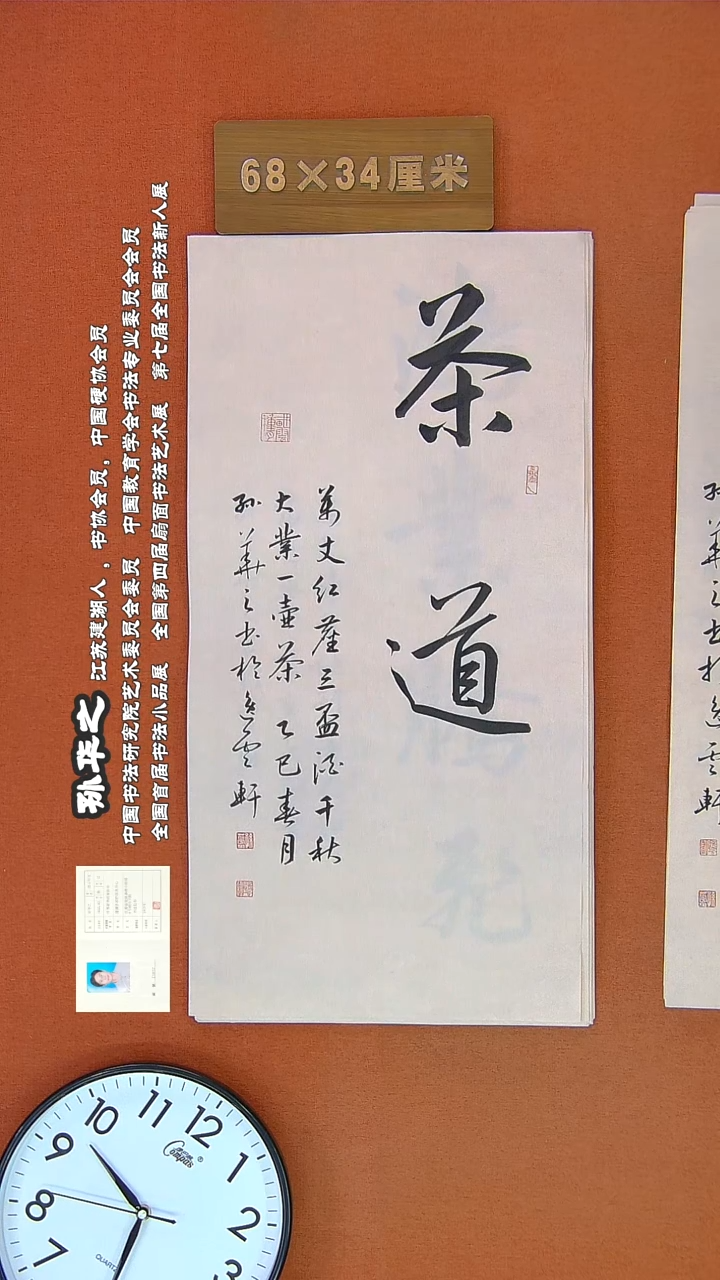 68×34厘米
茶道
萬丈红塵三盃酒千秋
大業一壶茶 乙巳春月
孙華之书於逸雲軒
孙华之
江苏建湖人，书协会员，中国硬协会员
中国书法研究院艺术委员会委员 中国教育学会书法专业委员会会员
全国首届书法小品展 全国第四届扇面书法艺术展 第七届全国书法新人展
10
11
12
9
1
8
2
7
3
Compas
QUARTZ